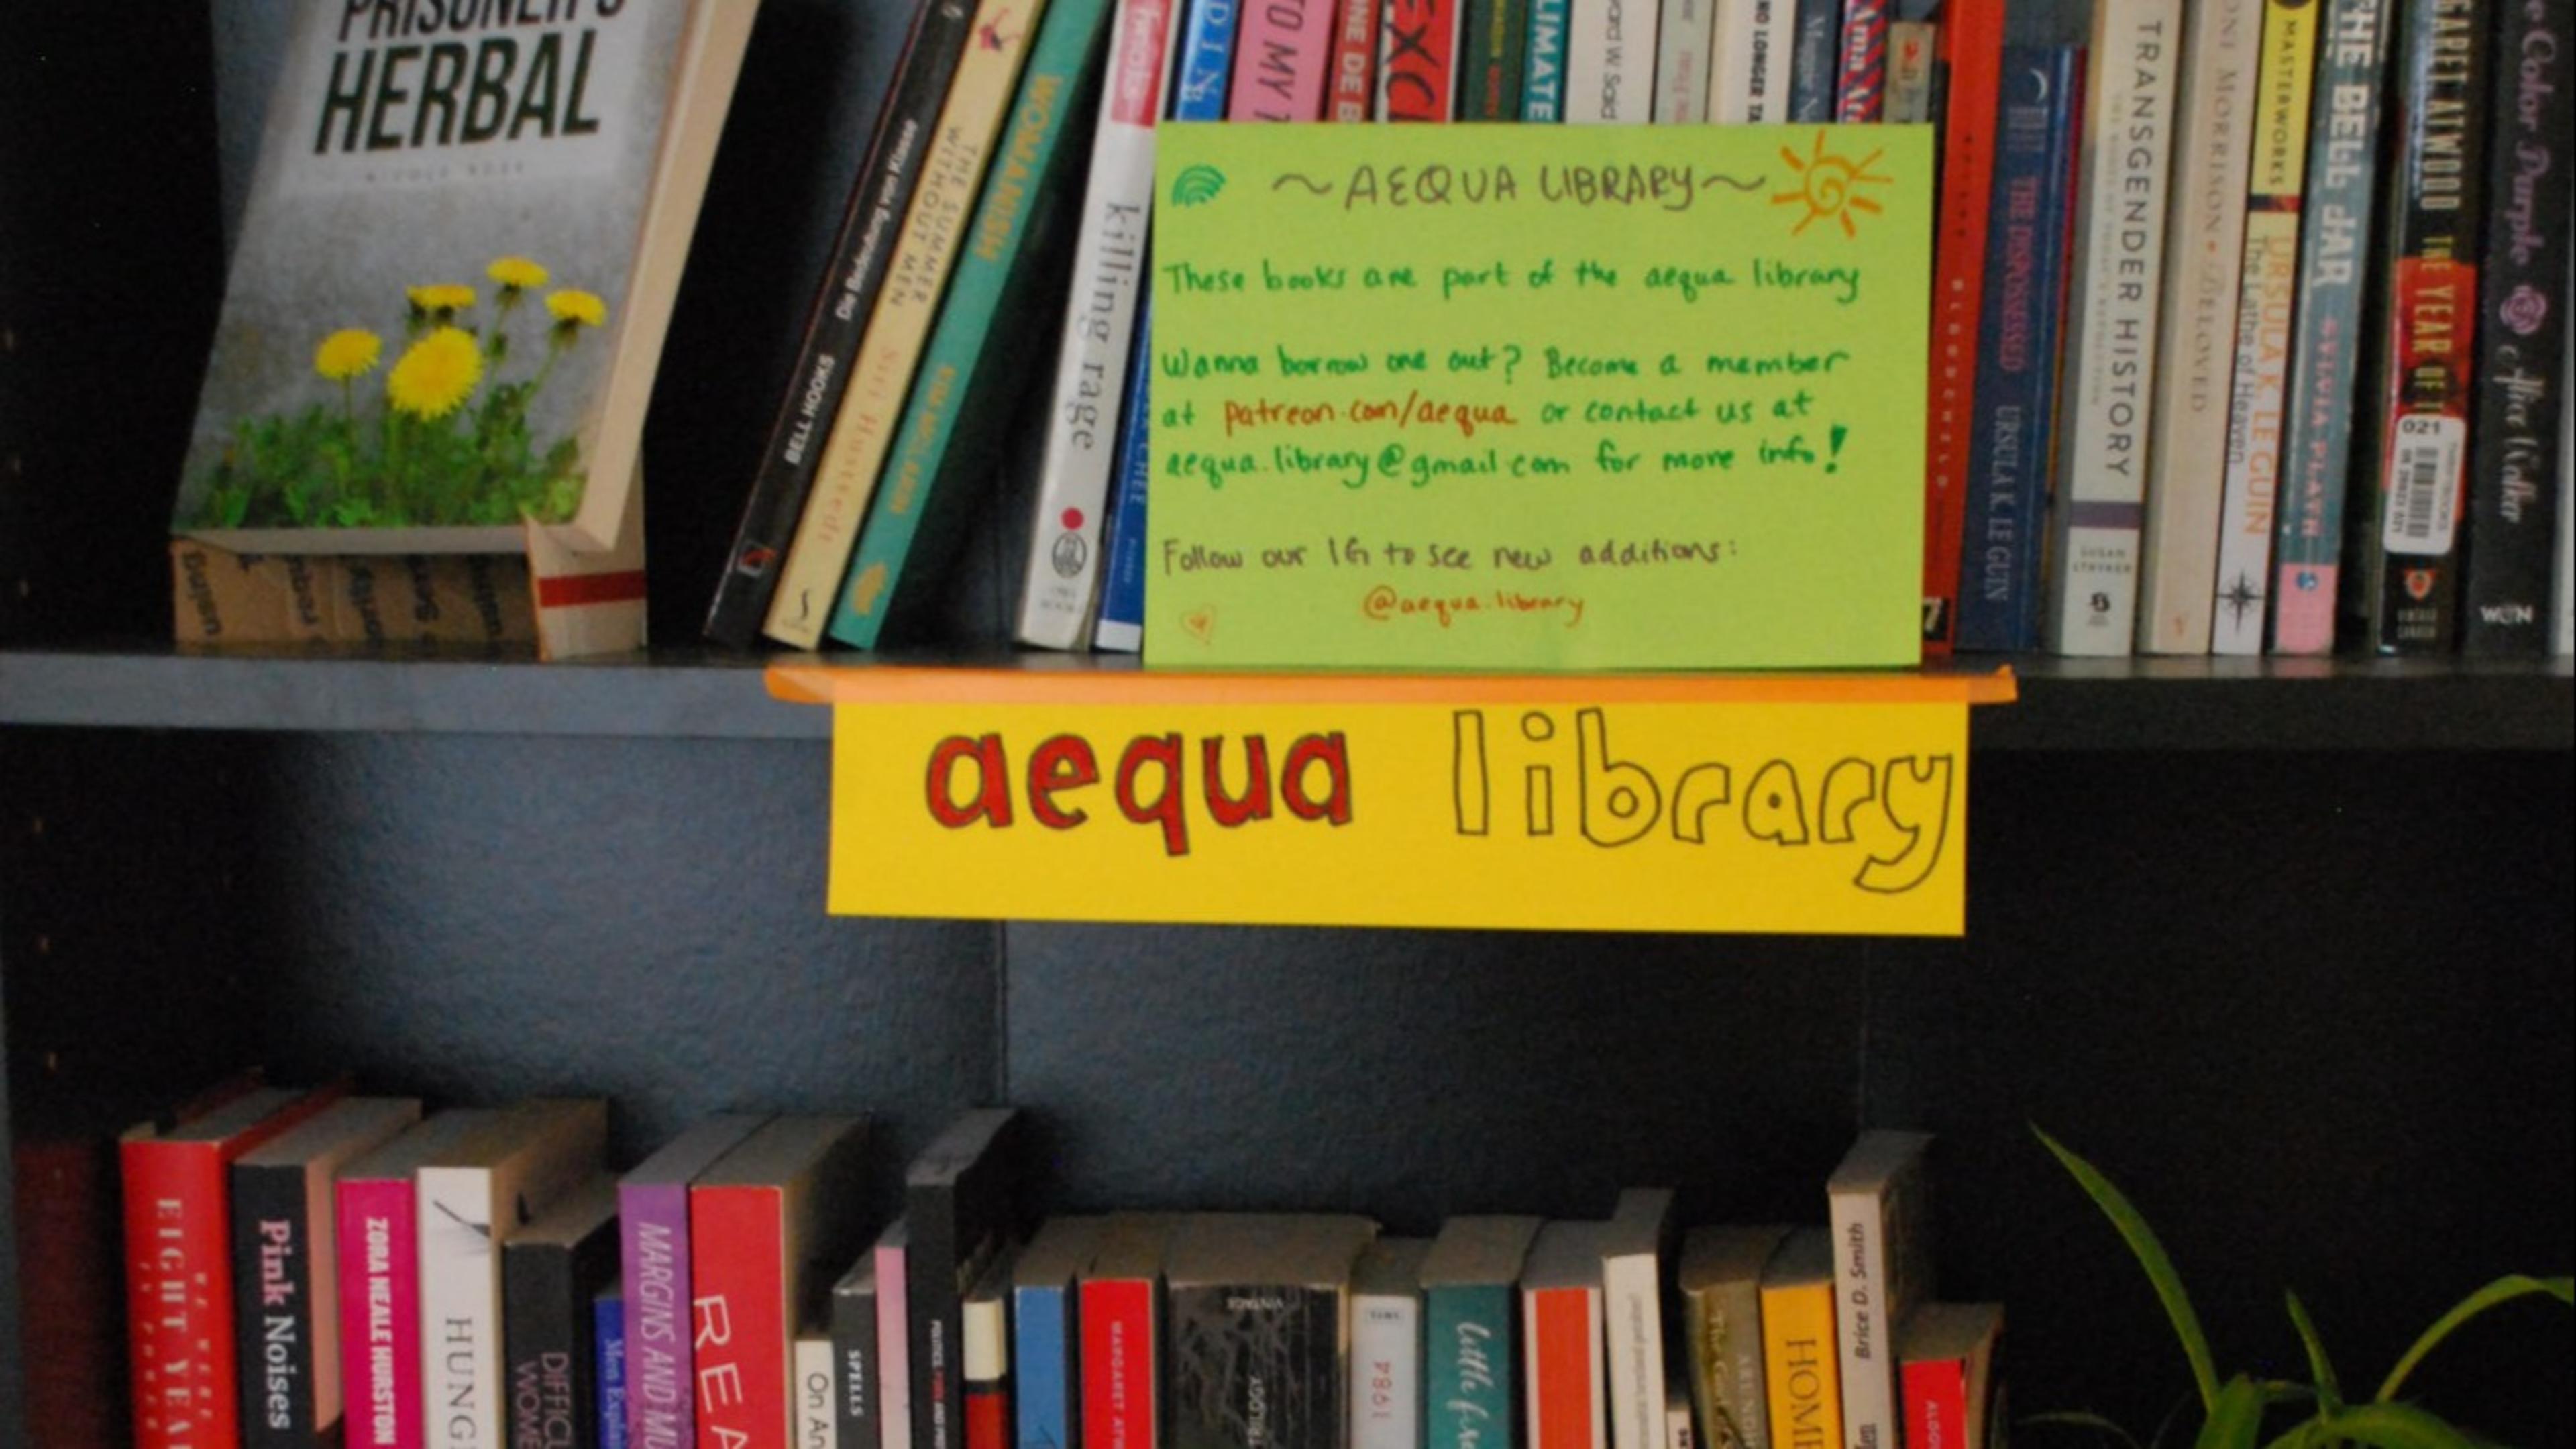 PRISONER'S
HERBAL
NICOLE ROSE
Die Bedeutung von Klasse
BELL HOOKS
THE SUMMER
WITHOUT MEN
Siri Hustvedt
WOMANISH
KIM McLARIN
hooks
killing rage
TO MY
EXC
CLIMATE
NO LONGER
~AEQUA LIBRARY~
These books are part of the aequa library
Wanna borrow one out? Become a member
at patreon.com/aequa or contact us at
aequa.library@gmail.com for more info!
Follow our IG to see new additions:
@aequa.library
THE DISPOSSESSED
URSULA K. LE GUIN
TRANSGENDER HISTORY
SUSAN
STRYKER
MORRISON • BELOVED
MASTERWORKS
URSULA K. LE GUIN
The Lathe of Heaven
THE BELL JAR
SYLVIA PLATH
MARGARET ATWOOD THE YEAR OF
021
Color Purple
Alice Walker
W&N
aequa library
EIGHT YEA
Pink Noises
ZORA NEALE HURSTON
HUNG
DIFFICU
WOME
Men Explain
MARGINS AND MU
REA
On An
SPELLS
MARGARET ATW
VINTAGE
TRILOGY
1984
little fire
HOME
Brice D. Smith